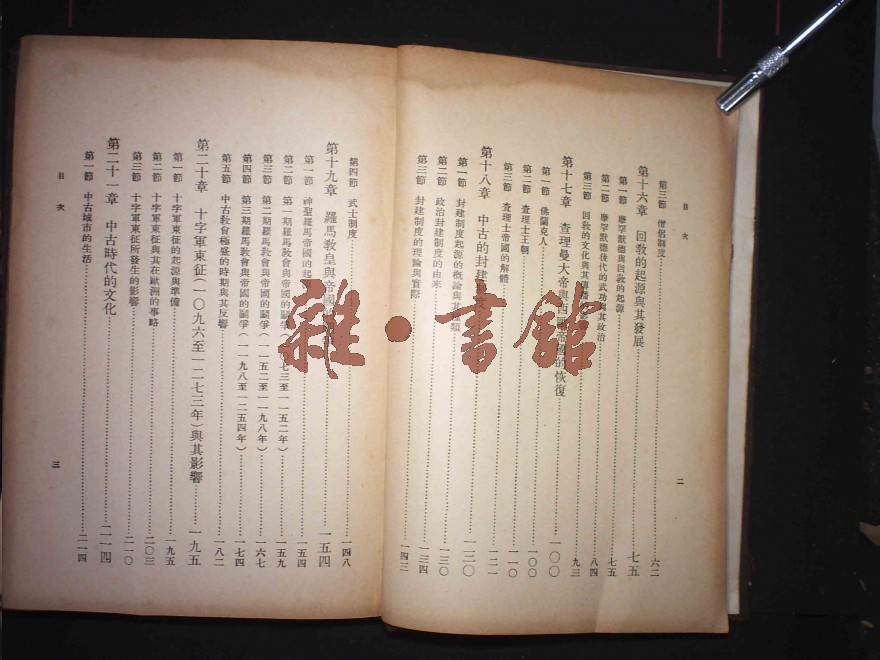 目次
二
第三節 僧侶制度……六二
第十六章 回教的起源與其發展……七五
第一節 摩罕默德與回教的起源……七五
第二節 摩罕默德後代的武功與其政治……八四
第三節 回教的文化與其……九三
第十七章 查理曼大帝與西羅帝國的恢復……一〇〇
第一節 佛蘭克人……
第二節 查理士王朝……一〇〇
第三節 查理士帝國的解體……一一〇
第十八章 中古的封建制度……一二〇
第一節 封建制度起源的概論與其種類……一二一
第二節 政治封建制度的由來……一三〇
第三節 封建制度的理論與實際……一三四
一四三
第四節 武士制度……一四八
第十九章 羅馬教皇與帝國……一五四
第一節 神聖羅馬帝國的起……一五四
第二節 第一期羅馬教會與帝國的鬬爭(一〇七三至一一五二年)……一五九
第三節 第二期羅馬教會與帝國的鬬爭(一一五二至一一九八年)……一六七
第四節 第三期羅馬教會與帝國的鬬爭(一一九八至一二五四年)……一七四
第五節 中古教會極盛的時期與其反響……一八二
第二十章 十字軍東征(一〇九六至一二七三年)與其影響……一九五
第一節 十字軍東征的起源與準備……一九五
第二節 十字軍東征與其在歐洲的事略……二〇三
第三節 十字軍東征所發生的影響……二一〇
第二十一章 中古時代的文化……二一四
第一節 中古城市的生活……二一四
目次
三
雜·書館